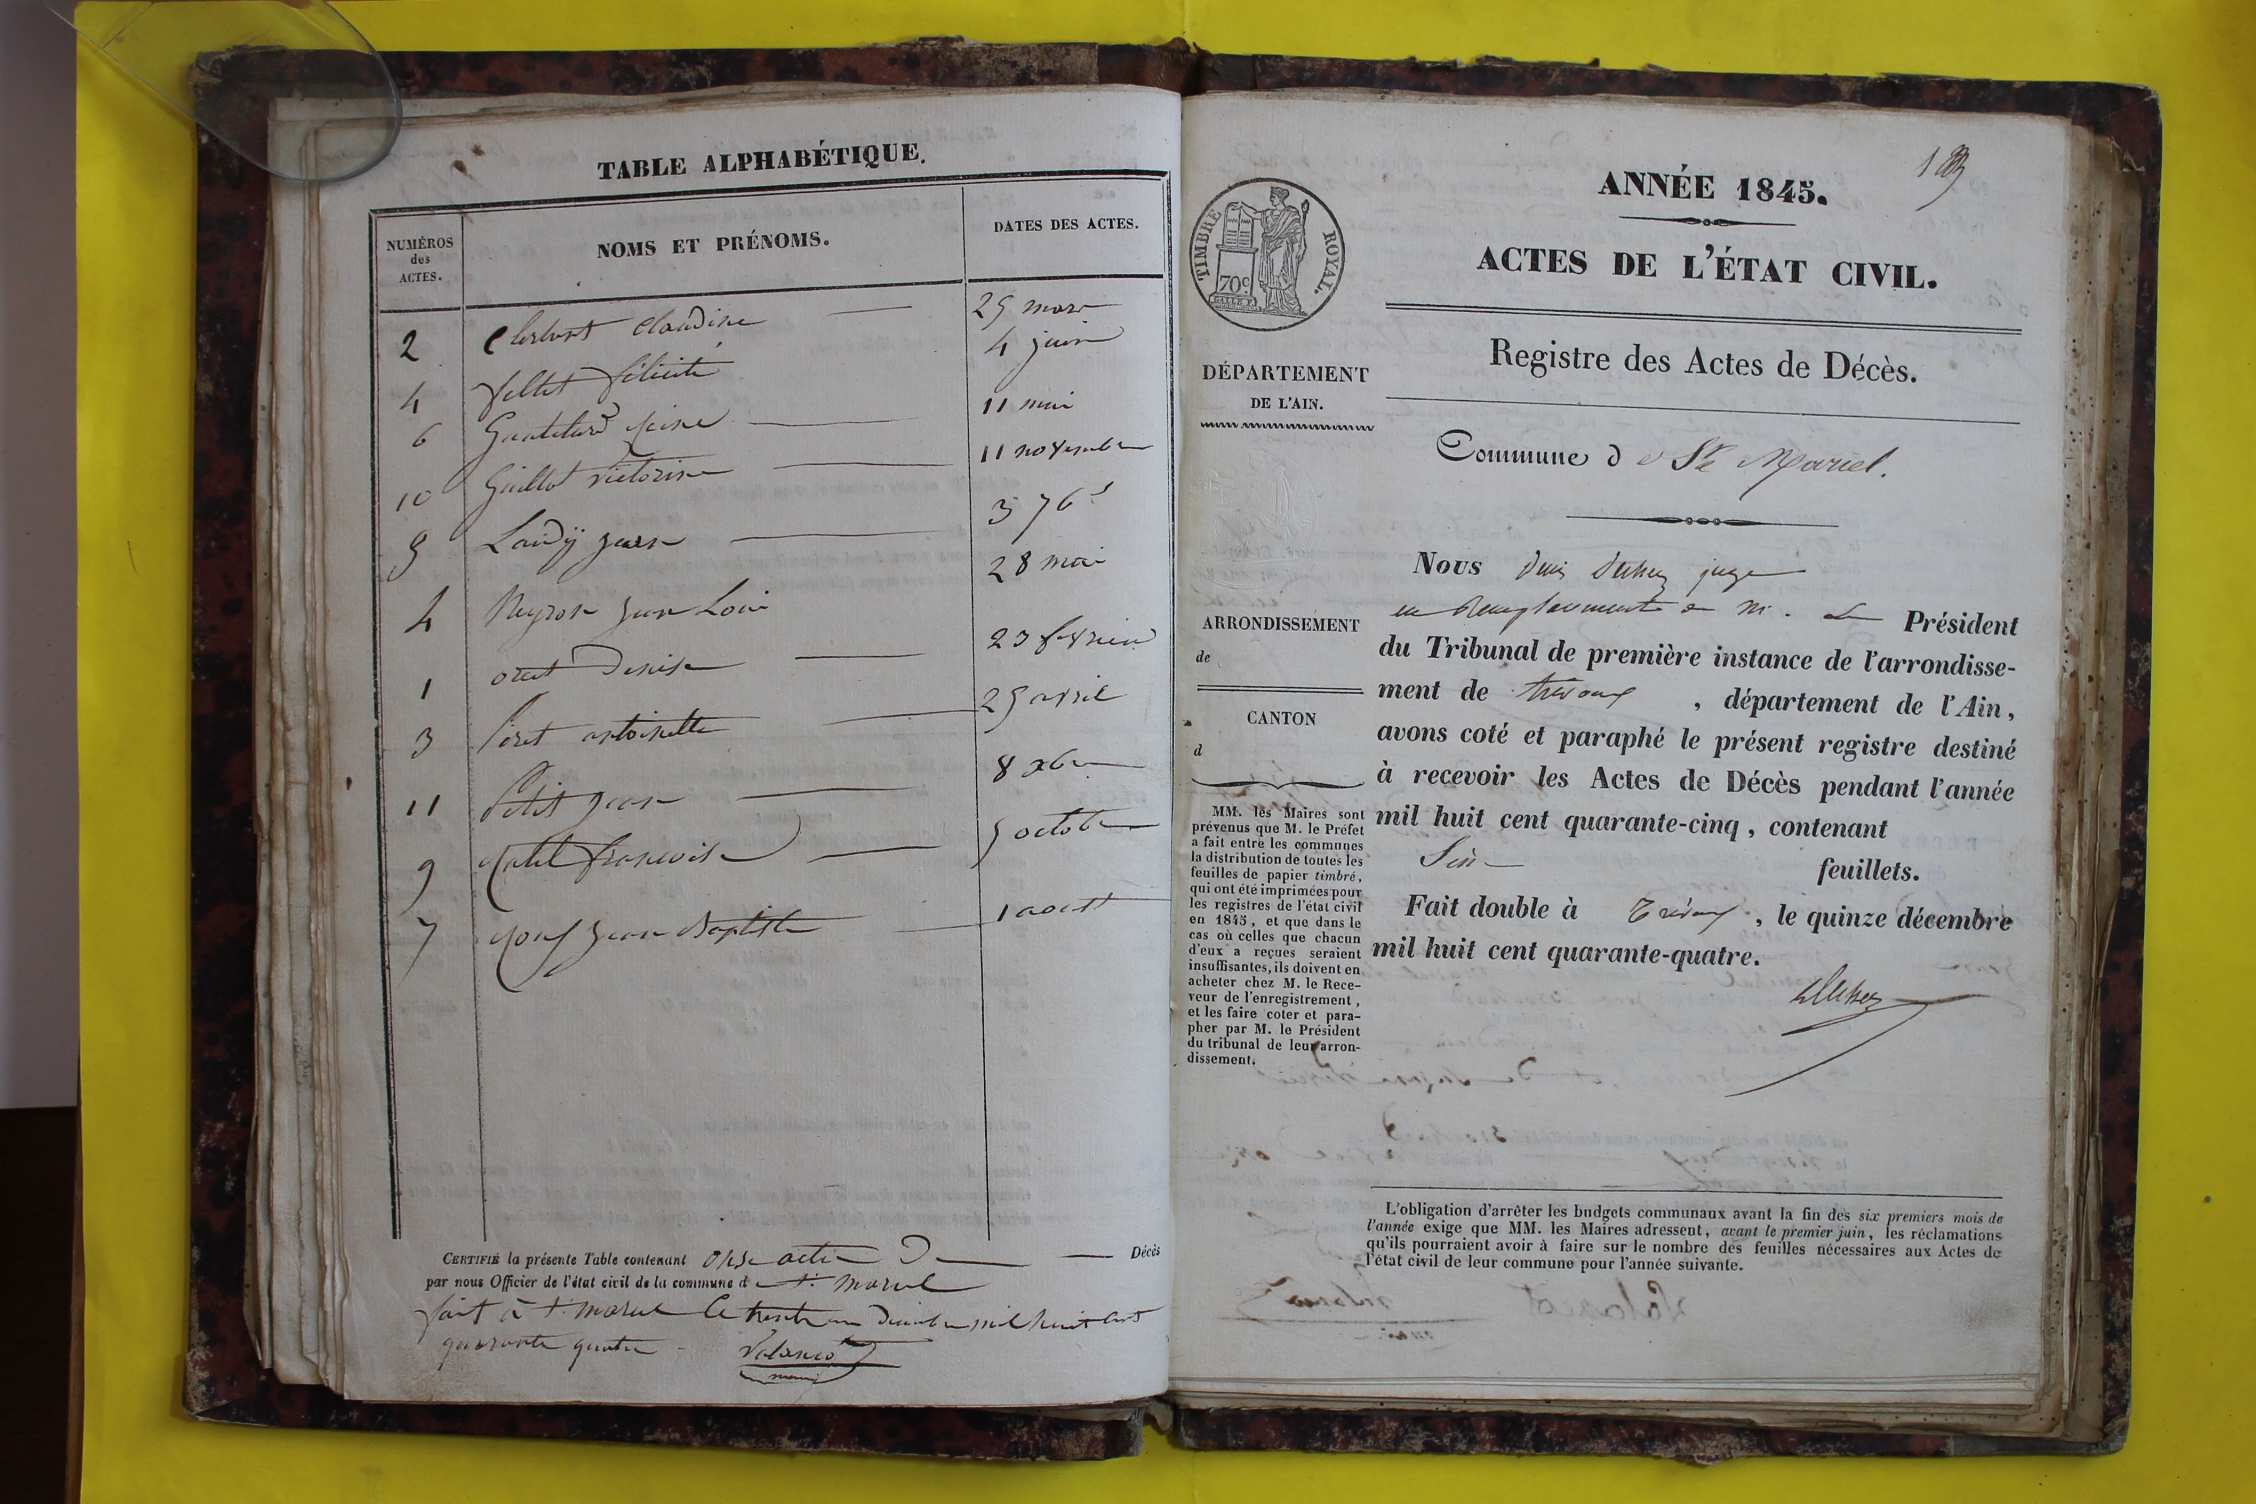 TABLE ALPHABÉTIQUE.
NUMÉROS
des
ACTES.
NOMS ET PRÉNOMS.
DATES DES ACTES.
2 Claudine 25 mars
4 félicité 4 juin
6 11 mai
10 Guillot victorine 11 novembre
Landÿ jean 3 76
4 Neyron jean Loui 28 mai
1 Denise 23 février
3 Péret antoinette 25 avril
11 Petit jean 8 xbre
9 françoise 5 octobre
7 jean Baptiste 1 aoust
CERTIFIÉ la présente Table contenant onse actes De Décès
par nous Officier de l'état civil de la commune d St marcel
fait à St marcel le trente un Décembre mil huit cent
quarante quatre
maire
ANNÉE 1845.
ACTES DE L'ÉTAT CIVIL.
Registre des Actes de Décès.
TIMBRE ROYAL.
70c.
DÉPARTEMENT
DE L'AIN.
ARRONDISSEMENT
de
CANTON
d
MM. les Maires sont
prévenus que M. le Préfet
a fait entre les communes
la distribution de toutes les
feuilles de papier timbré,
qui ont été imprimées pour
les registres de l'état civil
en 1845, et que dans le
cas où celles que chacun
d'eux a reçues seraient
insuffisantes, ils doivent en
acheter chez M. le Rece-
veur de l'enregistrement,
et les faire coter et para-
pher par M. le Président
du tribunal de leur arron-
dissement.
Commune d St Marcel.
Nous juge
en Remplacement de M. Le Président
du Tribunal de première instance de l'arrondisse-
ment de trévoux, département de l'Ain,
avons coté et paraphé le présent registre destiné
à recevoir les Actes de Décès pendant l'année
mil huit cent quarante-cinq, contenant
feuillets.
Fait double à Trévoux, le quinze décembre
mil huit cent quarante-quatre.
L'obligation d'arrêter les budgets communaux avant la fin des six premiers mois de
l'année exige que MM. les Maires adressent, avant le premier juin, les réclamations
qu'ils pourraient avoir à faire sur le nombre des feuilles nécessaires aux Actes de
l'état civil de leur commune pour l'année suivante.